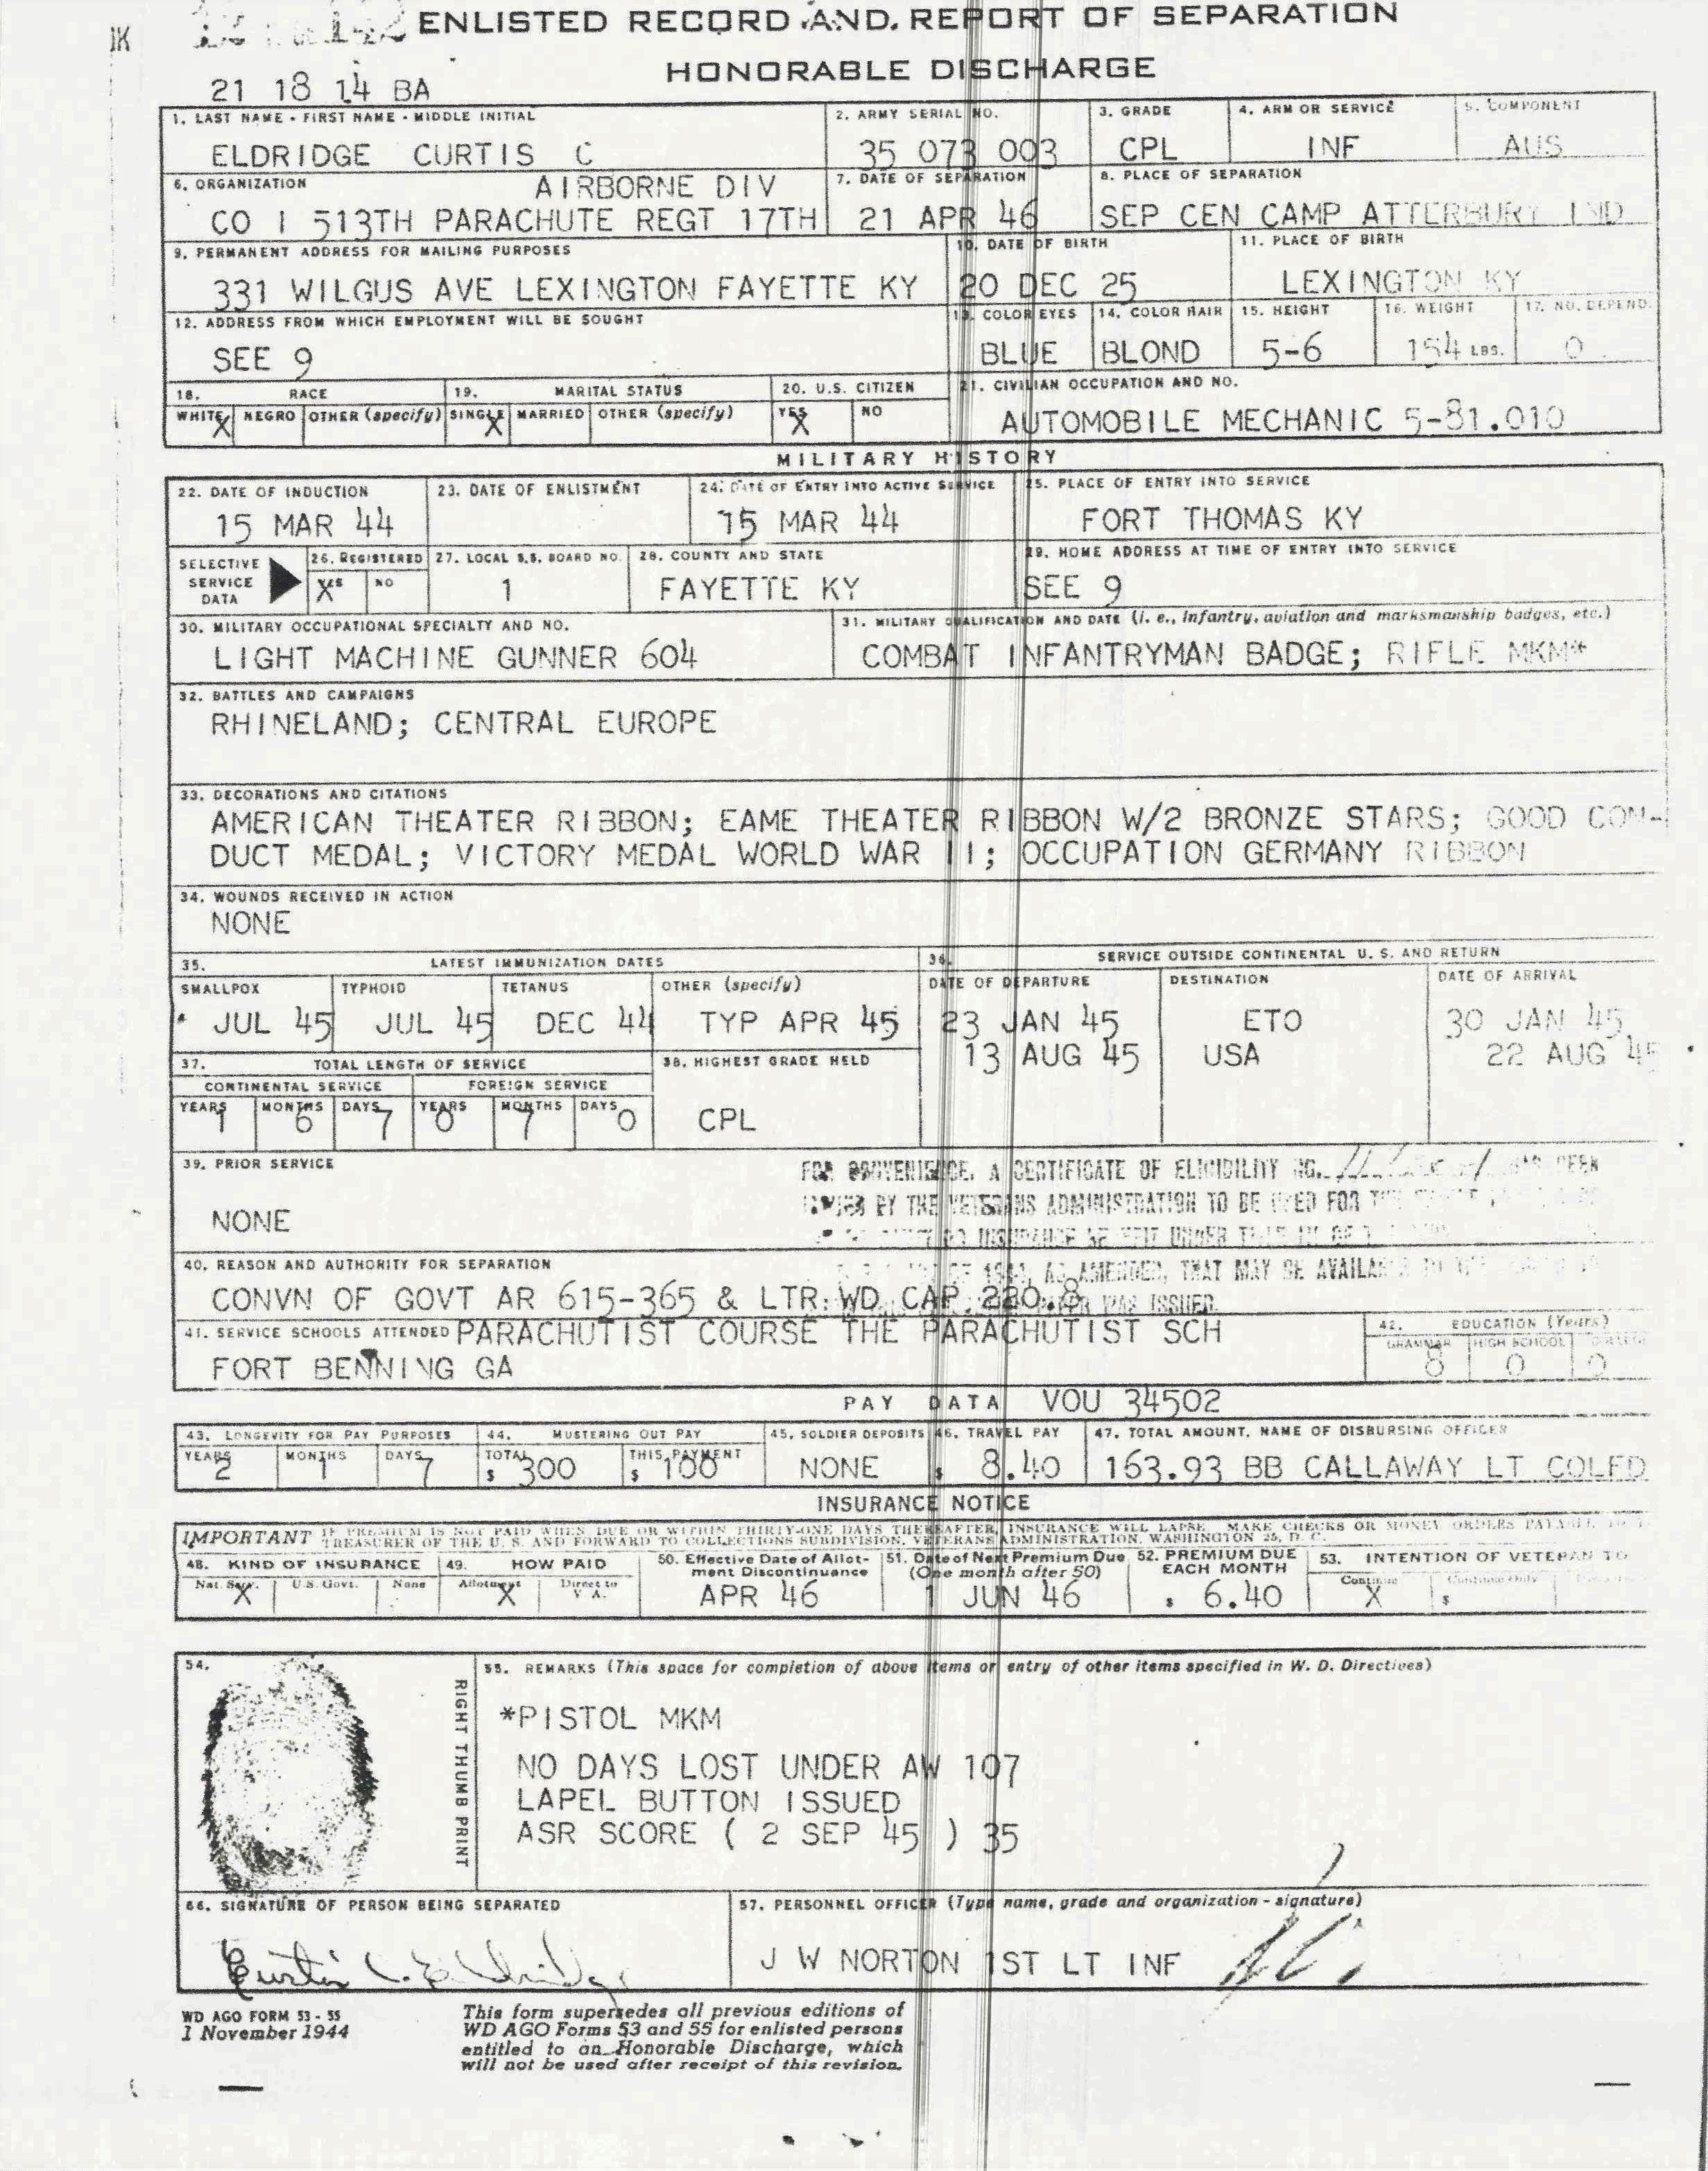 ENLISTED RECORD AND REPORT OF SEPARATION
HONORABLE DISCHARGE
21 18 14 BA
1. LAST NAME - FIRST NAME - MIDDLE INITIAL 2. ARMY SERIAL NO. 3. GRADE 4. ARM OR SERVICE 5. COMPONENT
ELDRIDGE CURTIS C 35 073 003 CPL INF AUS
6. ORGANIZATION AIRBORNE DIV 7. DATE OF SEPARATION 8. PLACE OF SEPARATION
CO I 513TH PARACHUTE REGT 17TH 21 APR 46 SEP CEN CAMP ATTERBURY IND
9. PERMANENT ADDRESS FOR MAILING PURPOSES 10. DATE OF BIRTH 11. PLACE OF BIRTH
331 WILGUS AVE LEXINGTON FAYETTE KY 20 DEC 25 LEXINGTON KY
12. ADDRESS FROM WHICH EMPLOYMENT WILL BE SOUGHT 13. COLOR EYES 14. COLOR HAIR 15. HEIGHT 16. WEIGHT 17. NO. DEPEND.
SEE 9 BLUE BLOND 5-6 154 LBS. 0
18. RACE 19. MARITAL STATUS 20. U.S. CITIZEN 21. CIVILIAN OCCUPATION AND NO.
WHITE X NEGRO OTHER (specify) SINGLE X MARRIED OTHER (specify) YES X NO AUTOMOBILE MECHANIC 5-81.010
MILITARY HISTORY
22. DATE OF INDUCTION 23. DATE OF ENLISTMENT 24. DATE OF ENTRY INTO ACTIVE SERVICE 25. PLACE OF ENTRY INTO SERVICE
15 MAR 44 15 MAR 44 FORT THOMAS KY
SELECTIVE SERVICE DATA 26. REGISTERED 27. LOCAL S.S. BOARD NO. 28. COUNTY AND STATE 29. HOME ADDRESS AT TIME OF ENTRY INTO SERVICE
YES X NO 1 FAYETTE KY SEE 9
30. MILITARY OCCUPATIONAL SPECIALTY AND NO. 31. MILITARY QUALIFICATION AND DATE (i. e., infantry, aviation and marksmanship badges, etc.)
LIGHT MACHINE GUNNER 604 COMBAT INFANTRYMAN BADGE; RIFLE MKM*
32. BATTLES AND CAMPAIGNS
RHINELAND; CENTRAL EUROPE
33. DECORATIONS AND CITATIONS
AMERICAN THEATER RIBBON; EAME THEATER RIBBON W/2 BRONZE STARS; GOOD CON-
DUCT MEDAL; VICTORY MEDAL WORLD WAR II; OCCUPATION GERMANY RIBBON
34. WOUNDS RECEIVED IN ACTION
NONE
35. LATEST IMMUNIZATION DATES 36. SERVICE OUTSIDE CONTINENTAL U. S. AND RETURN
SMALLPOX TYPHOID TETANUS OTHER (specify) DATE OF DEPARTURE DESTINATION DATE OF ARRIVAL
JUL 45 JUL 45 DEC 44 TYP APR 45 23 JAN 45 ETO 30 JAN 45
37. TOTAL LENGTH OF SERVICE 38. HIGHEST GRADE HELD 13 AUG 45 USA 22 AUG 45
CONTINENTAL SERVICE FOREIGN SERVICE
YEARS MONTHS DAYS YEARS MONTHS DAYS
1 6 7 0 7 0 CPL
39. PRIOR SERVICE
FOR CONVENIENCE, A CERTIFICATE OF ELIGIBILITY NO. BEEN
BY THE VETERANS ADMINISTRATION TO BE USED FOR
NONE
40. REASON AND AUTHORITY FOR SEPARATION AS AMENDED, THAT MAY BE
CONVN OF GOVT AR 615-365 & LTR WD CAP 220.8 WAS ISSUED
41. SERVICE SCHOOLS ATTENDED PARACHUTIST COURSE THE PARACHUTIST SCH 42. EDUCATION (Years)
FORT BENNING GA GRAMMAR 8 HIGH SCHOOL 0 COLLEGE 0
PAY DATA VOU 34502
43. LONGEVITY FOR PAY PURPOSES 44. MUSTERING OUT PAY 45. SOLDIER DEPOSITS 46. TRAVEL PAY 47. TOTAL AMOUNT, NAME OF DISBURSING OFFICER
YEARS 2 MONTHS 1 DAYS 7 TOTAL $ 300 THIS PAYMENT $ 100 NONE $ 8.40 163.93 BB CALLAWAY LT COLFD
INSURANCE NOTICE
IMPORTANT IF PREMIUM IS NOT PAID WHEN DUE OR WITHIN THIRTY-ONE DAYS THEREAFTER, INSURANCE WILL LAPSE. MAKE CHECKS OR MONEY ORDERS PAYABLE TO
TREASURER OF THE U. S. AND FORWARD TO COLLECTIONS SUBDIVISION, VETERANS ADMINISTRATION, WASHINGTON 25, D. C.
48. KIND OF INSURANCE 49. HOW PAID 50. Effective Date of Allotment Discontinuance 51. Date of Next Premium Due (One month after 50) 52. PREMIUM DUE EACH MONTH 53. INTENTION OF VETERAN TO
Nat. Serv. X U.S. Govt. None Allotment X Direct to V. A. APR 46 1 JUN 46 $ 6.40 Continue X Continue Only $
54. RIGHT THUMB PRINT
55. REMARKS (This space for completion of above items or entry of other items specified in W. D. Directives)
*PISTOL MKM
NO DAYS LOST UNDER AW 107
LAPEL BUTTON ISSUED
ASR SCORE ( 2 SEP 45 ) 35
56. SIGNATURE OF PERSON BEING SEPARATED 57. PERSONNEL OFFICER (Type name, grade and organization - signature)
Curtis C. Eldridge J W NORTON 1ST LT INF
WD AGO FORM 53 - 55
1 November 1944
This form supersedes all previous editions of
WD AGO Forms 53 and 55 for enlisted persons
entitled to an Honorable Discharge, which
will not be used after receipt of this revision.